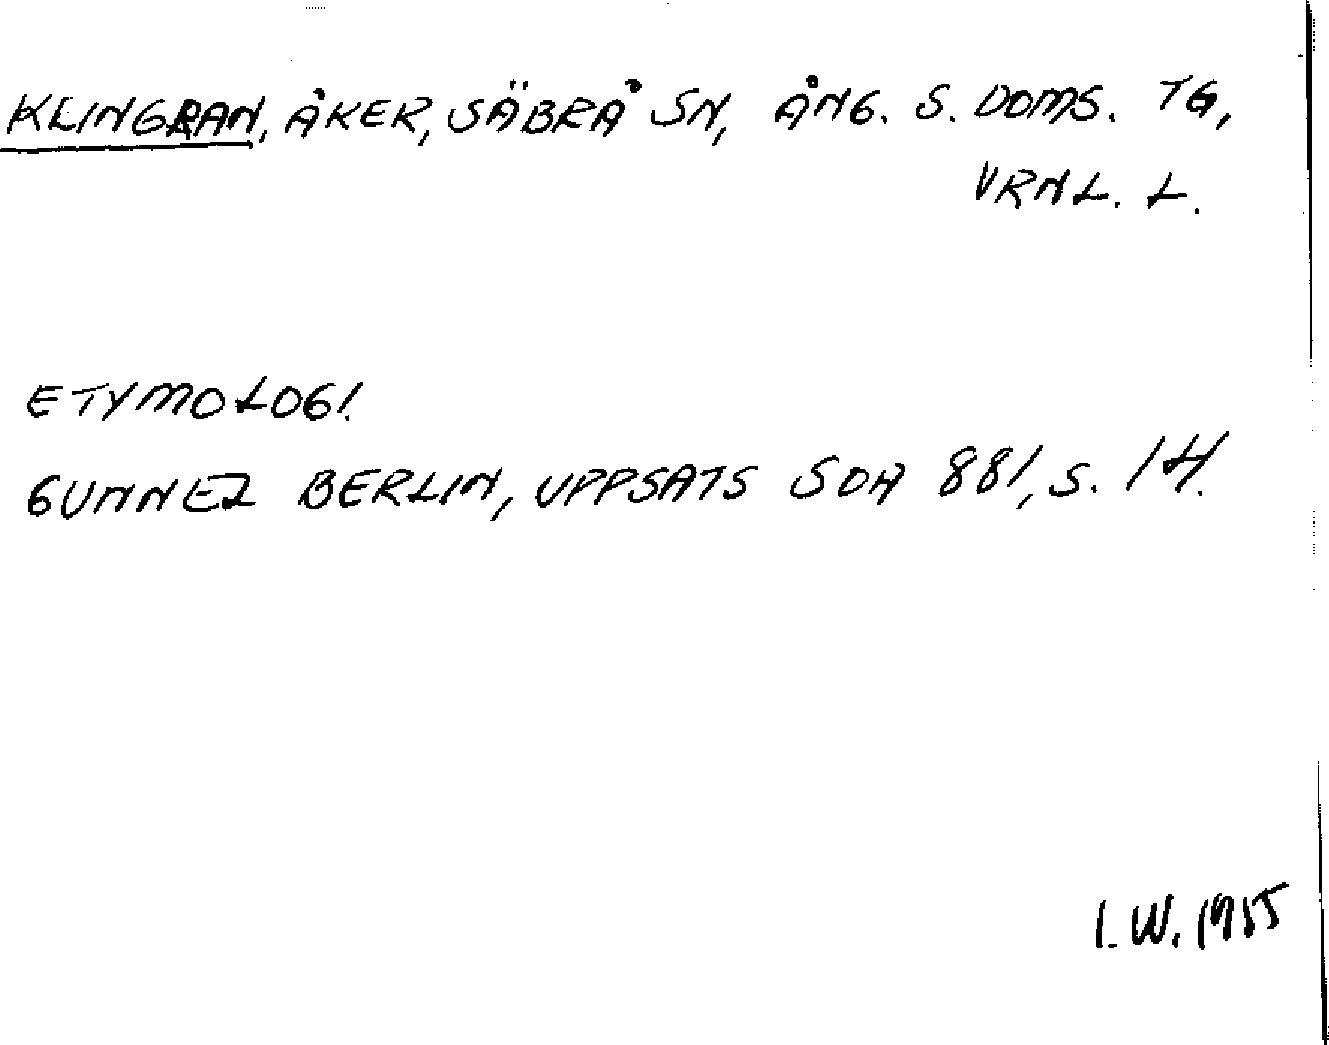 KLINGRAN, ÅKER, SÄBRÅ SN, ÅNG. S. DOMS. TG,
VRNL. L.
ETYMOLOGI.
GUNNEL BERLIN, UPPSATS SOA 881, S. 14.
I.W. 1985